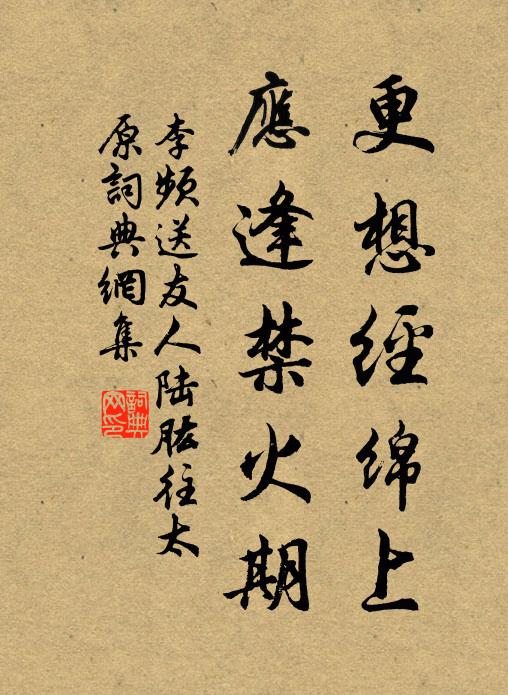 更想經綿上
應逢禁火期
李頻送友人陸肱往太
原詞典網集
詞典
网印